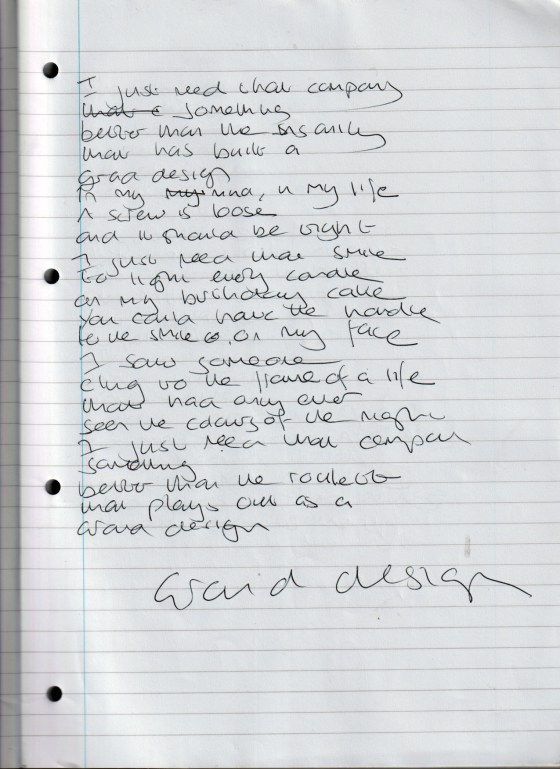 I just need that company
that c something
better than the insanity
that has built a
grand design
in my my mind, in my life
A screw is loose
and it should be tight
I just need that smile
to light every candle
on my birthday cake
You could have the handle
to the smile on my face
I saw someone
cling to the frame of a life
that had only ever
seen the colours of the night
I just need that company
something
better than the roulette
that plays out as a
Grand design
Grand design